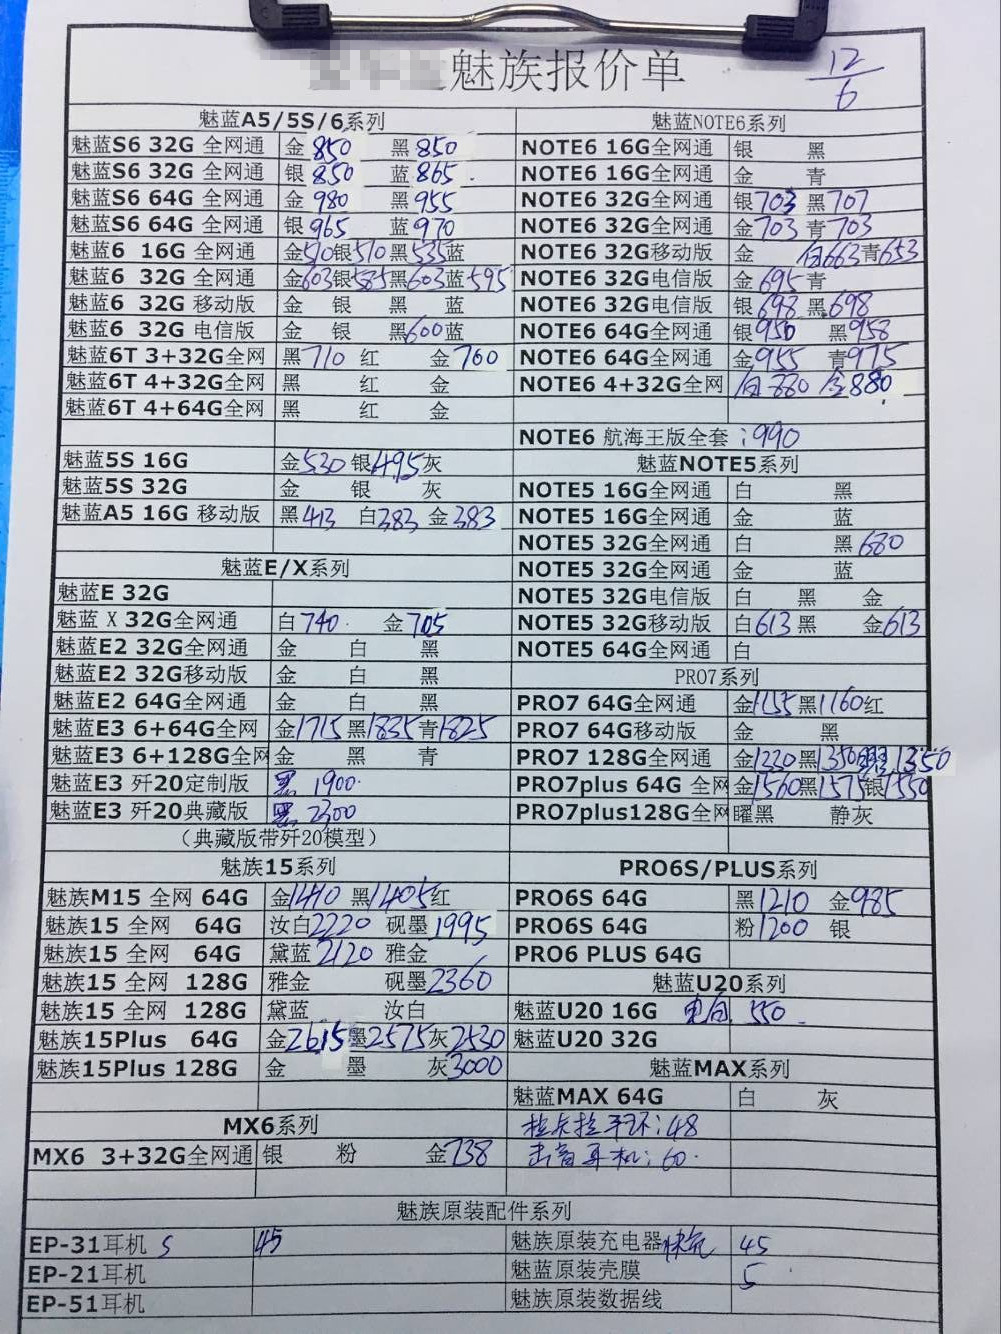 魅族报价单
12/6
魅蓝A5/5S/6系列
魅蓝S6 32G 全网通 金850 黑850
魅蓝S6 32G 全网通 银850 蓝865
魅蓝S6 64G 全网通 金980 黑955
魅蓝S6 64G 全网通 银965 蓝970
魅蓝6 16G 全网通 金510银510黑535蓝
魅蓝6 32G 全网通 金603银585黑603蓝595
魅蓝6 32G 移动版 金 银 黑 蓝
魅蓝6 32G 电信版 金 银 黑600蓝
魅蓝6T 3+32G全网 黑710 红 金760
魅蓝6T 4+32G全网 黑 红 金
魅蓝6T 4+64G全网 黑 红 金
魅蓝5S 16G 金530银495灰
魅蓝5S 32G 金 银 灰
魅蓝A5 16G 移动版 黑413 白383 金383
魅蓝E/X系列
魅蓝E 32G
魅蓝X 32G全网通 白740 金705
魅蓝E2 32G全网通 金 白 黑
魅蓝E2 32G移动版 金 白 黑
魅蓝E2 64G全网通 金 白 黑
魅蓝E3 6+64G全网 金1715黑1835青1825
魅蓝E3 6+128G全网 金 黑 青
魅蓝E3 歼20定制版 黑 1900
魅蓝E3 歼20典藏版 黑 2300
（典藏版带歼20模型）
魅族15系列
魅族M15 全网 64G 金1410 黑1405红
魅族15 全网 64G 汝白2220 砚墨1995
魅族15 全网 64G 黛蓝2120 雅金
魅族15 全网 128G 雅金 砚墨2360
魅族15 全网 128G 黛蓝 汝白
魅族15Plus 64G 金2615墨2575灰2530
魅族15Plus 128G 金 墨 灰3000
MX6系列
MX6 3+32G全网通 银 粉 金738
魅蓝NOTE6系列
NOTE6 16G全网通 银 黑
NOTE6 16G全网通 金 青
NOTE6 32G全网通 银703 黑707
NOTE6 32G全网通 金703 青703
NOTE6 32G移动版 金 白663青653
NOTE6 32G电信版 金695青
NOTE6 32G电信版 银698黑698
NOTE6 64G全网通 银950 黑958
NOTE6 64G全网通 金955 青975
NOTE6 4+32G全网 白880 金880
NOTE6 航海王版全套：990
魅蓝NOTE5系列
NOTE5 16G全网通 白 黑
NOTE5 16G全网通 金 蓝
NOTE5 32G全网通 白 黑680
NOTE5 32G全网通 金 蓝
NOTE5 32G电信版 白 黑 金
NOTE5 32G移动版 白613黑 金613
NOTE5 64G全网通 白
PRO7系列
PRO7 64G全网通 金1155黑1160红
PRO7 64G移动版 金 黑
PRO7 128G全网通 金1220黑1350 1350
PRO7plus 64G 全网 金1560黑1575银1550
PRO7plus128G全网 曜黑 静灰
PRO6S/PLUS系列
PRO6S 64G 黑1210 金985
PRO6S 64G 粉1200 银
PRO6 PLUS 64G
魅蓝U20系列
魅蓝U20 16G 550
魅蓝U20 32G
魅蓝MAX系列
魅蓝MAX 64G 白 灰
拉卡拉手环：48
击音耳机：60
魅族原装配件系列
EP-31耳机 S 45 魅族原装充电器快充 45
EP-21耳机 魅蓝原装壳膜 5
EP-51耳机 魅族原装数据线